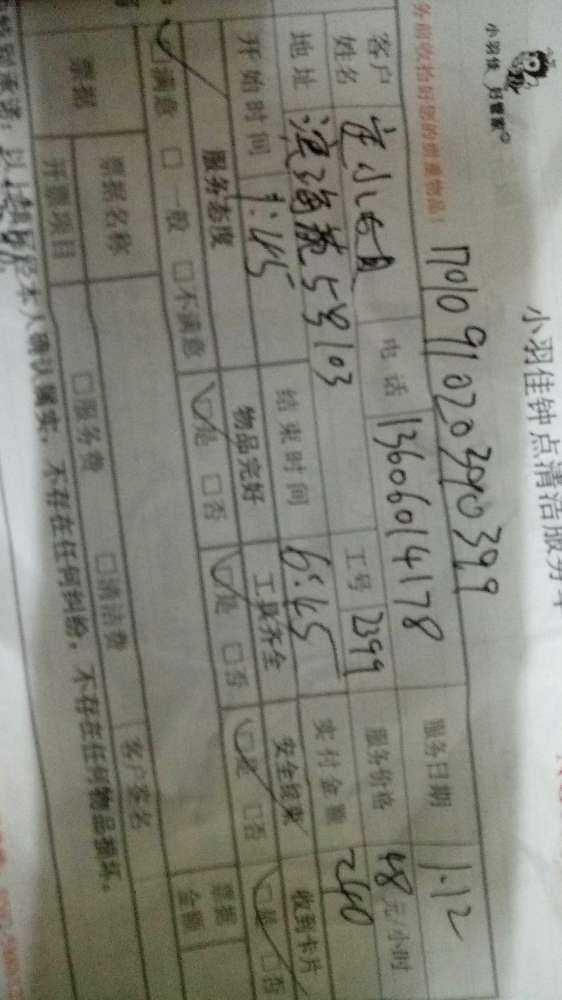 小羽佳 好管家
小羽佳钟点清洁服务
务前收拾好您的贵重物品！
1701091020390399
服务日期 1.12
客户姓名 庄小姐 电话 13606014178 服务价格 48元/小时
地址 5号103 工号 2399 实付金额 240
开始时间 1:45 结束时间 6:45
服务态度 物品完好 工具齐全 安全结束 收到卡片
满意 □一般 □不满意 是 □否 是 □否 是 □否 是 □否
票据 票据名称 □服务费 □清洁费 票据金额
开票项目 客户签名
经本人确认属实，不存在任何纠纷，不存在任何物品损坏。